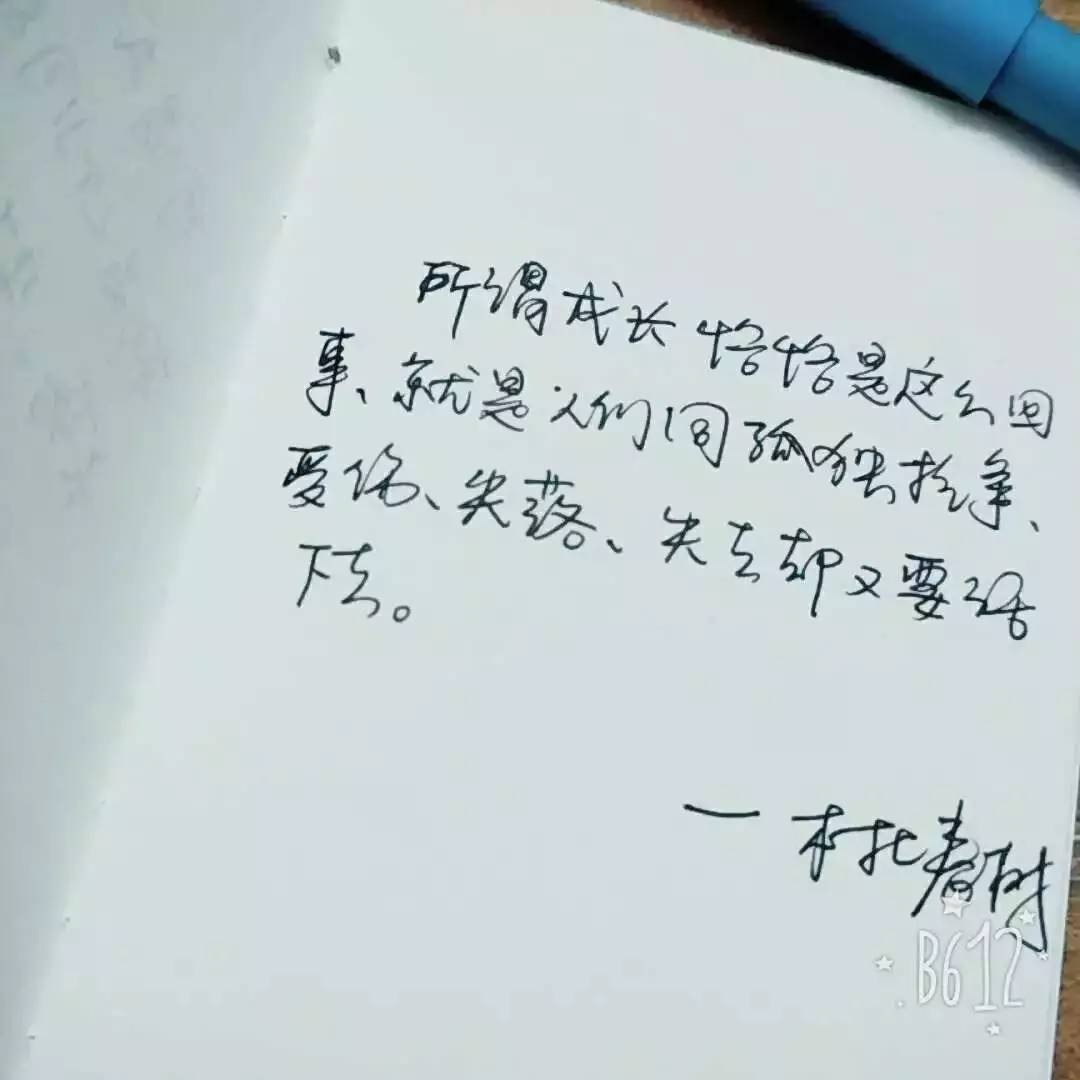 所谓成长恰恰是这么回
事、就是人们同孤独抗争、
受伤、失落、失去却又要活
下去。
— 村上春树
B612